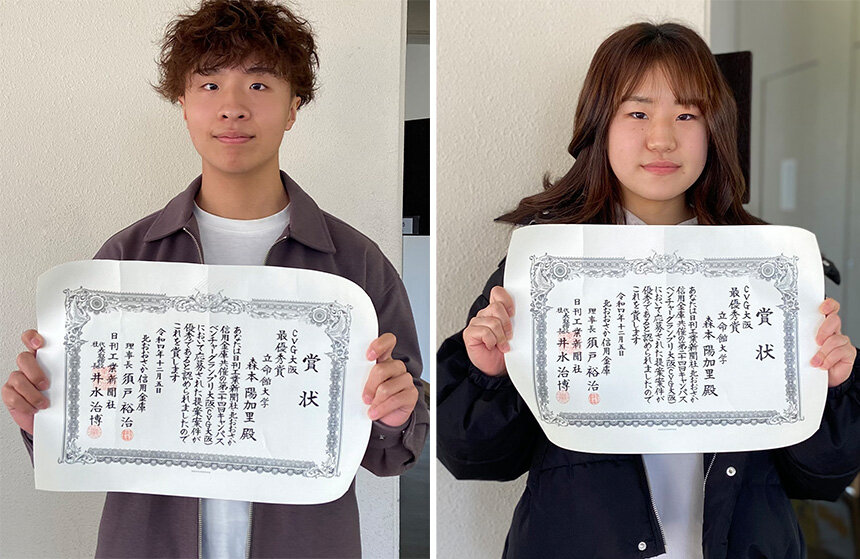 賞状
CVG大阪
最優秀賞
立命館大学
森本 陽加里 殿
あなたは日刊工業新聞社・北おおさか
信用金庫共催の第二十四回キャンパス
ベンチャーグランプリ大阪(CVG大阪)
において応募された提案案件が
優秀であると認められましたので
これを賞します
令和四年十二月五日
北おおさか信用金庫
理事長 須戸裕治
日刊工業新聞社
代表取締役社長 井水治博
賞状
CVG大阪
最優秀賞
立命館大学
森本 陽加里 殿
あなたは日刊工業新聞社・北おおさか
信用金庫共催の第二十四回キャンパス
ベンチャーグランプリ大阪(CVG大阪)
において応募された提案案件が
優秀であると認められましたので
これを賞します
令和四年十二月五日
北おおさか信用金庫
理事長 須戸裕治
日刊工業新聞社
代表取締役社長 井水治博